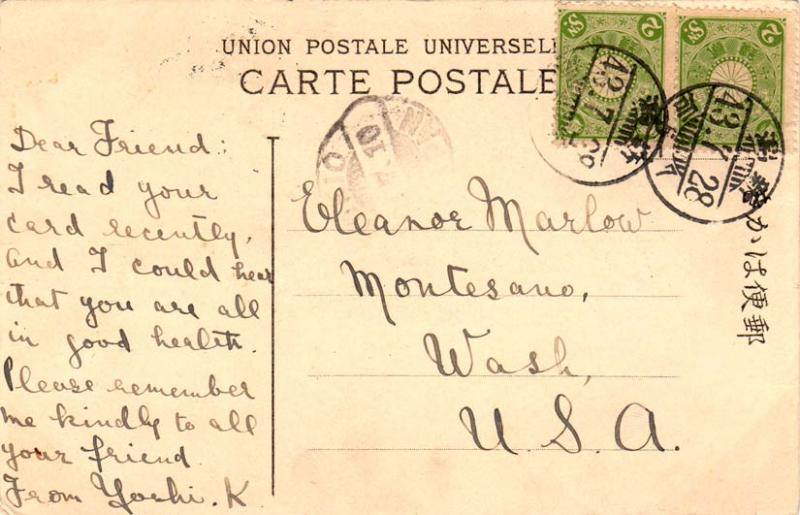 UNION POSTALE UNIVERSELL
CARTE POSTALE
Dear Friend:
I read your
card recently,
and I could hear
that you are all
in good health.
Please remember
me kindly to all
your friend
From Yoshi. K
Eleanor Marlow
Montesano,
Wash,
U. S. A.
2 SN.
2 SN.
43.7.28
43.7.28
郵便はかき